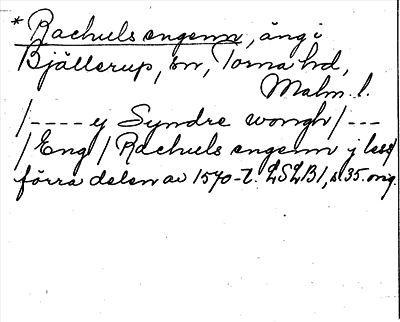 * Rachuls engenn, äng i
Bjällerup, sn, Torna hd,
Malm. l.
/---- ej Syndre wongh/---
/Eng/ Rachuels engenn j less
förra delen av 1570-t. LSLB1, s. 35. orig.